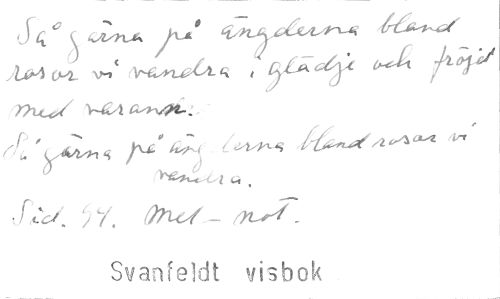 Så gärna på ängderna bland
rosor vi vandra i glädje och fröjd
med varann.
Så gärna på ängderna bland rosor vi
vandra.
Sid. 94. Mel-not.
Svanfeldt visbok